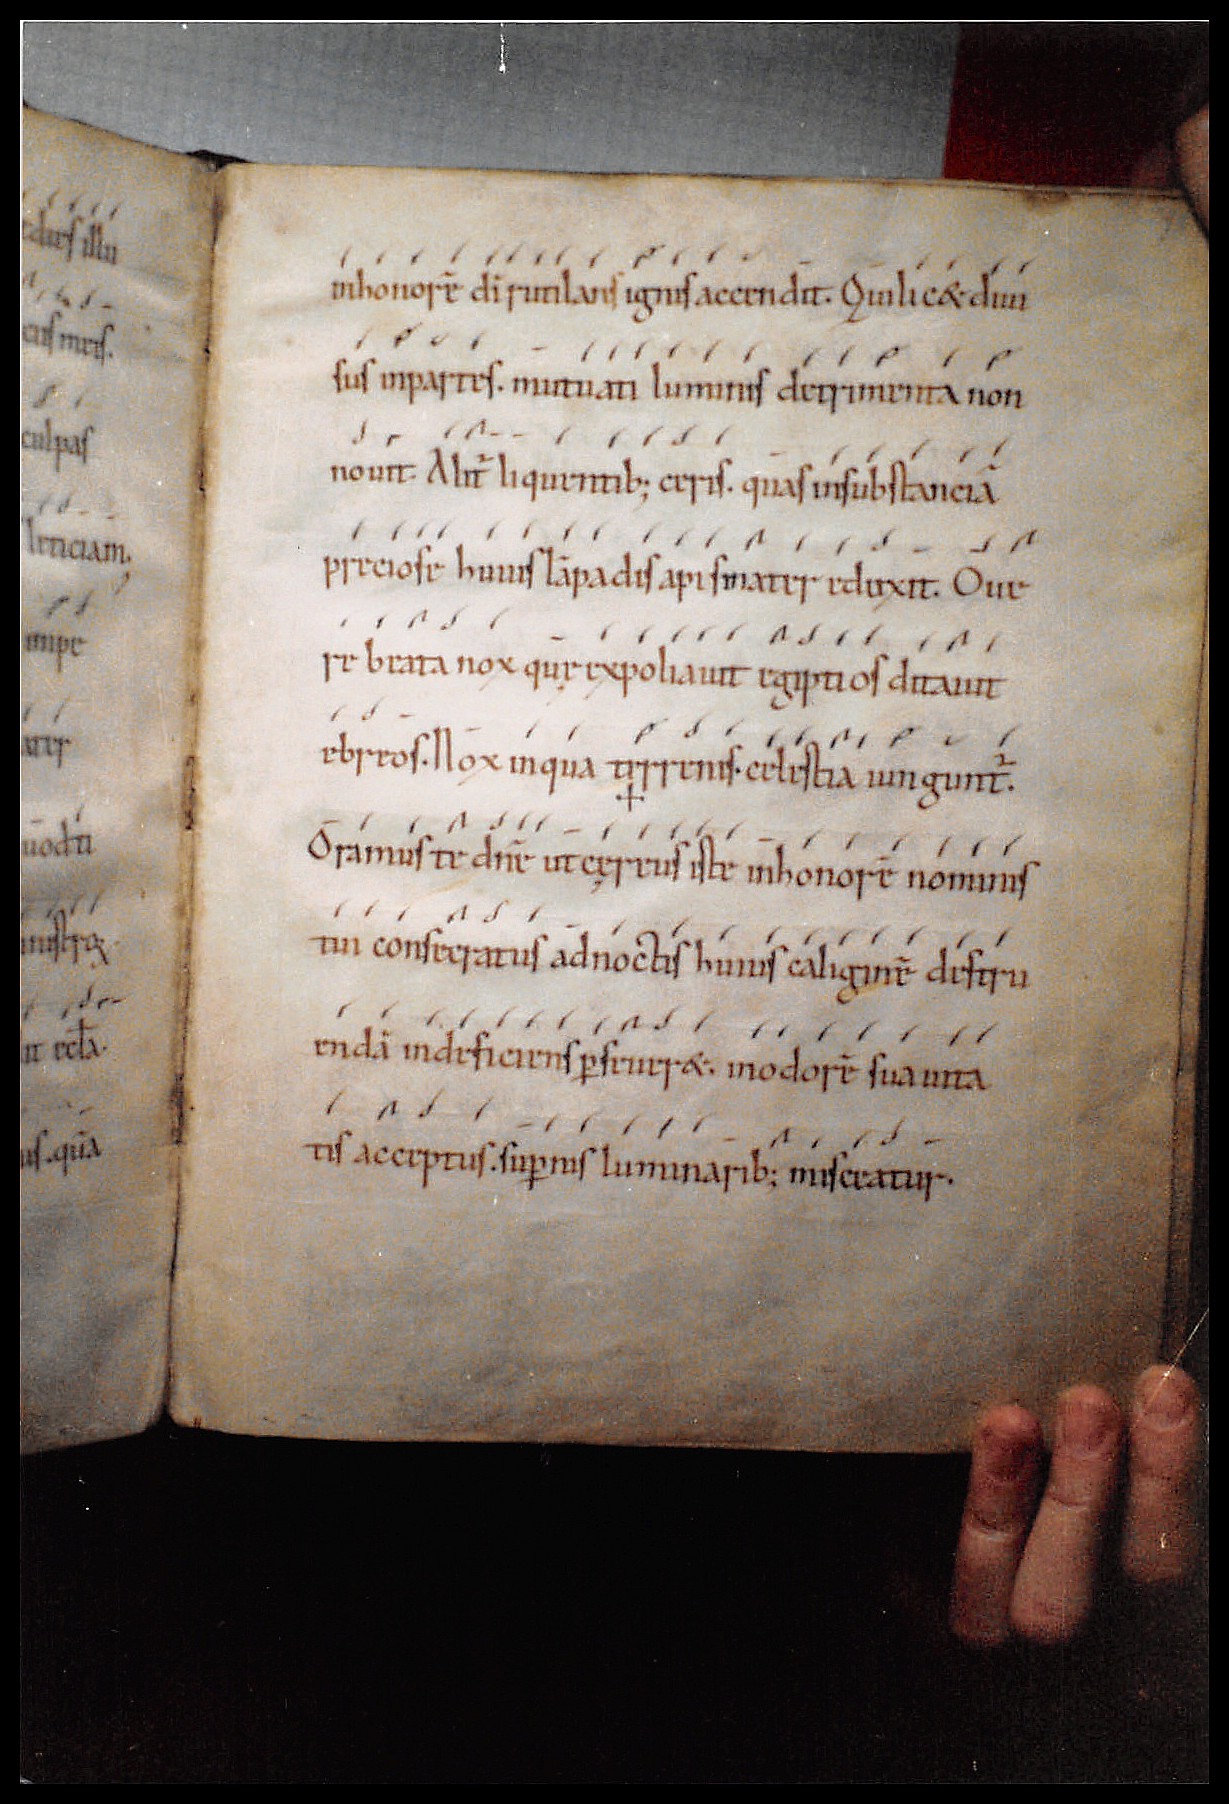 dies illu
cus meis.
culpas
leticiam;
impe
ater
uiodu
nistroꝝ.
it eccla.
us. qua
inhonorē dī rutilans ignis accendit. Qui lic& diui
sus inpartes. mutuati luminis detrimenta non
nouit. Alit̄ liquentib; ceris. quas insubstanciā
preciose huius lāpadis apis mater eduxit. O ue
re beata nox quę expoliauit egiptios ditauit
ebreos. Nox inqua terrenis. celestia iungunt̄.
+
Oramus te dn̄e ut cęreus iste inhonorē nominis
tui consecratus adnoctis huius caliginē destru
endā indeficiens ꝑseuer&. inodorē suauita
tis acceptus. suꝑnis luminarib; misceatur.